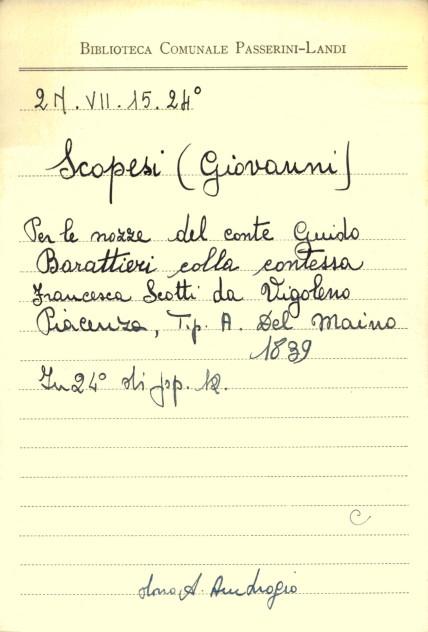 BIBLIOTECA COMUNALE PASSERINI-LANDI
2 N. VII. 15. 24°
Scopesi (Giovanni)
Per le nozze del conte Guido
Barattieri colla contessa
Francesca Scotti da Vigoleno
Piacenza, Tip. A. Del Maino
1839
In 24° di pp. 12.
C
dono A. Ambrogio